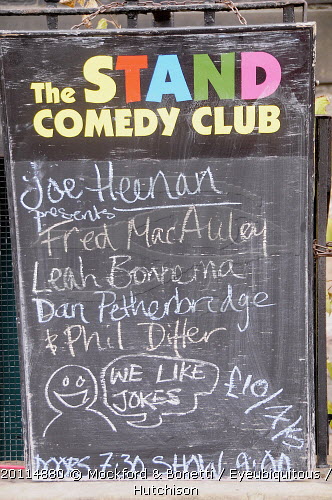 The STAND
COMEDY CLUB
Joe Heenan
presents
Fred MacAuley
Leah Bonnema
Dan Petherbridge
& Phil Differ
WE LIKE
JOKES
£10/7/5
DOORS 7.30 SHOW 9.00
20114880 © Mockford & Bonetti / Eyeubiquitous /
Hutchison